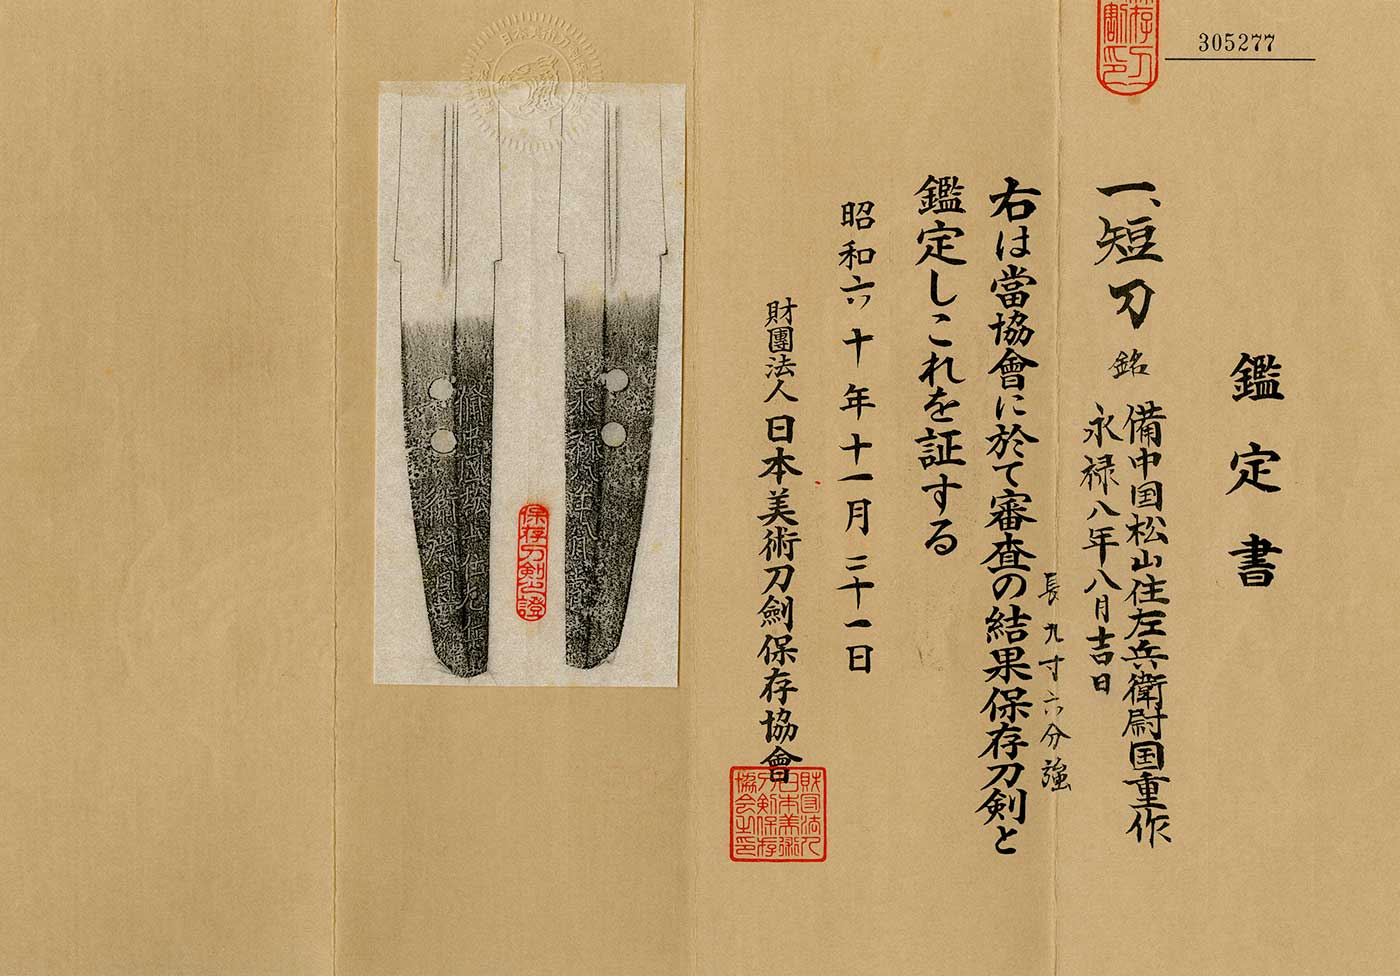 305277
鑑定書
一、短刀 銘 備中国松山住左兵衛尉国重作
永禄八年八月吉日
長九寸六分強
右は當協會に於て審査の結果保存刀剣と
鑑定しこれを証する
昭和六十年十一月三十一日
財團法人日本美術刀劍保存協會
財団法人
日本美術
刀剣保存
協会之印
保存刀剣之證
永禄八年八月吉日